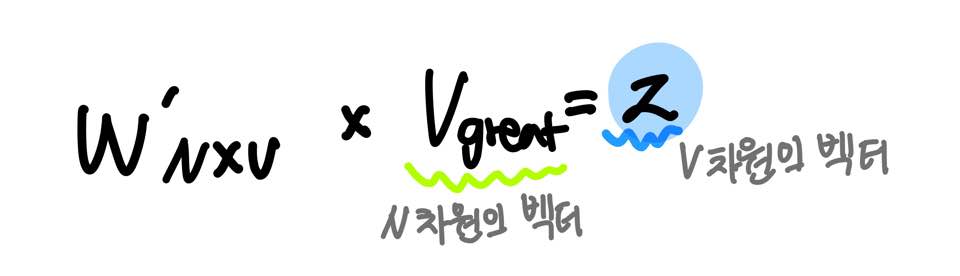 W'NXV x Vgreat = z
V차원의 벡터
N차원의 벡터